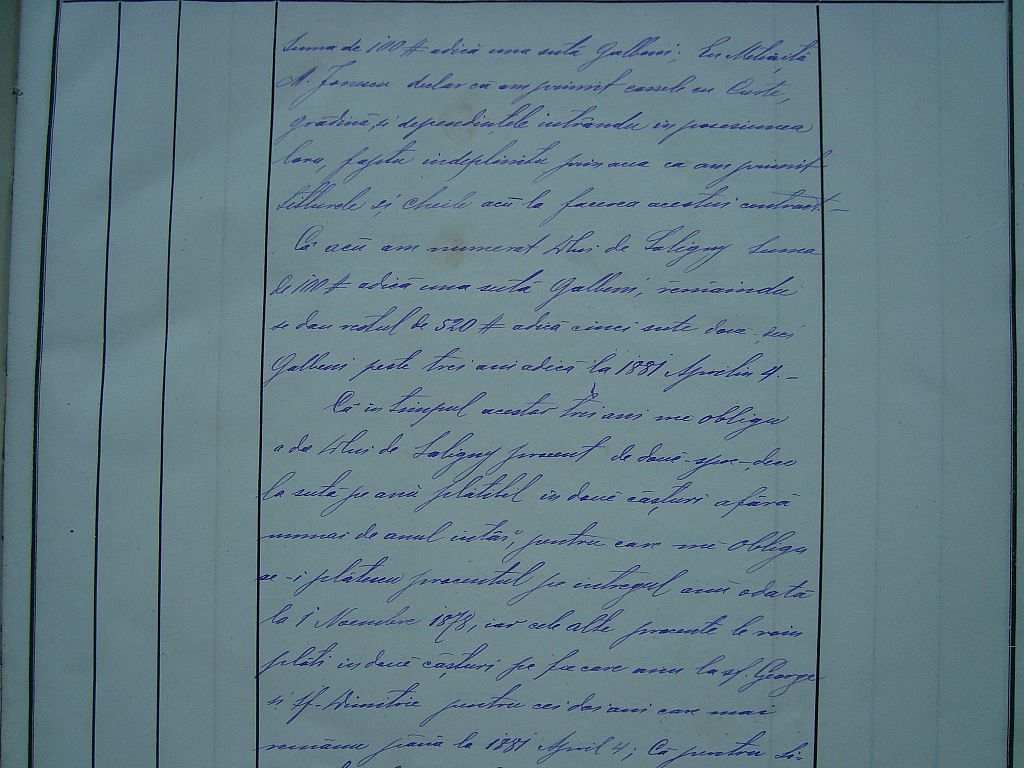 Suma de 100 # adică una sută Galbeni; Eu
N. Ionescu declar că am primit casele cu Curte,
grădină și dependințele intrându in posesiunea
loru, faptu indeplinitu prin aceea ca am primit
titlurele și cheile acù la facerea acestui contract. —
Că acù am numerat Dlui de Saligny suma
de 100 # adică una sută Galbeni, remaindu
se dau restul de 520 # adică cinci sute doue-deci
Galbeni peste trei ani adică la 1881 Aprilie 4. —
Că in timpul acestor trei ani me obligu
a da Dlui de Saligny procent de douĕ-spre-dece
la sută pe anu plătibil in douĕ câșturi afără
numai de anul intâi, pentru care mĕ obligu
ae-i plătescu procentul pe intregul anu odată
la 1 Noembre 1878, iar cele alte procente le voiu
plăti in douĕ câșturi pe fie care anu la sf. George
si sf. Dimitrie pentru cei doi ani care mai
remânu pănă la 1881 April 4; Că pentru si-